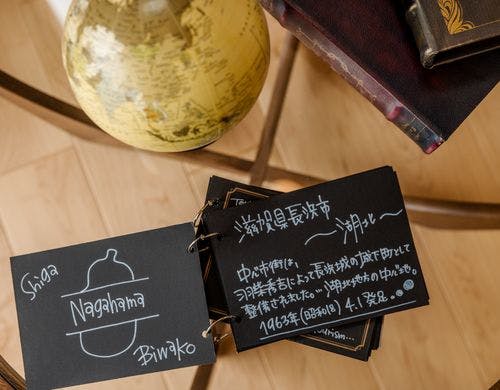 Shiga
Nagahama
Biwako
滋賀県長浜市
〜湖北〜
中心市街は、
羽柴秀吉によって長浜城の城下町として
整備されました。… 湖北地方の中心地。
1963年(昭和18) 4.1発足。